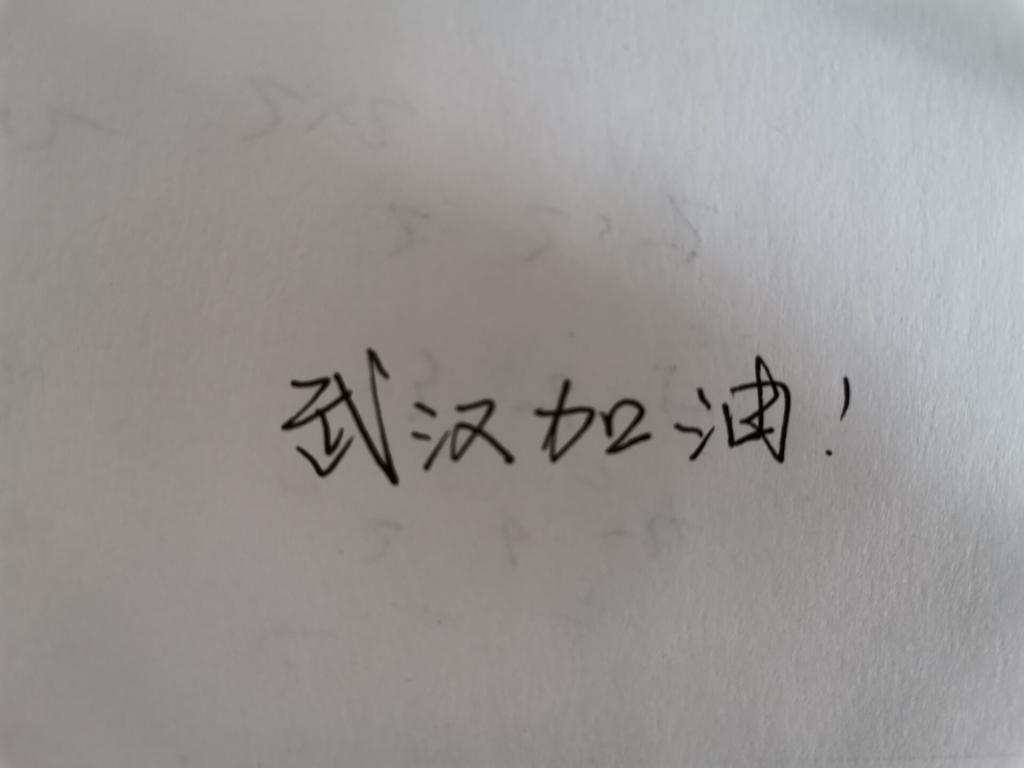 武汉加油!